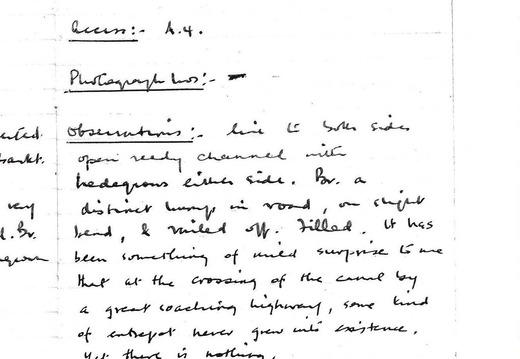 Access:- A.4.
Photograph Nos:- -
Observations:- line to both sides
open reedy channel with
hedegrows either side. Br. a
distinct hump in road, on slight
bend, & railed off. Filled. It has
been something of mild surprise to me
that at the crossing of the canal by
a great coaching highway, some kind
of entrepot never grew into existence.
Yet there is nothing.